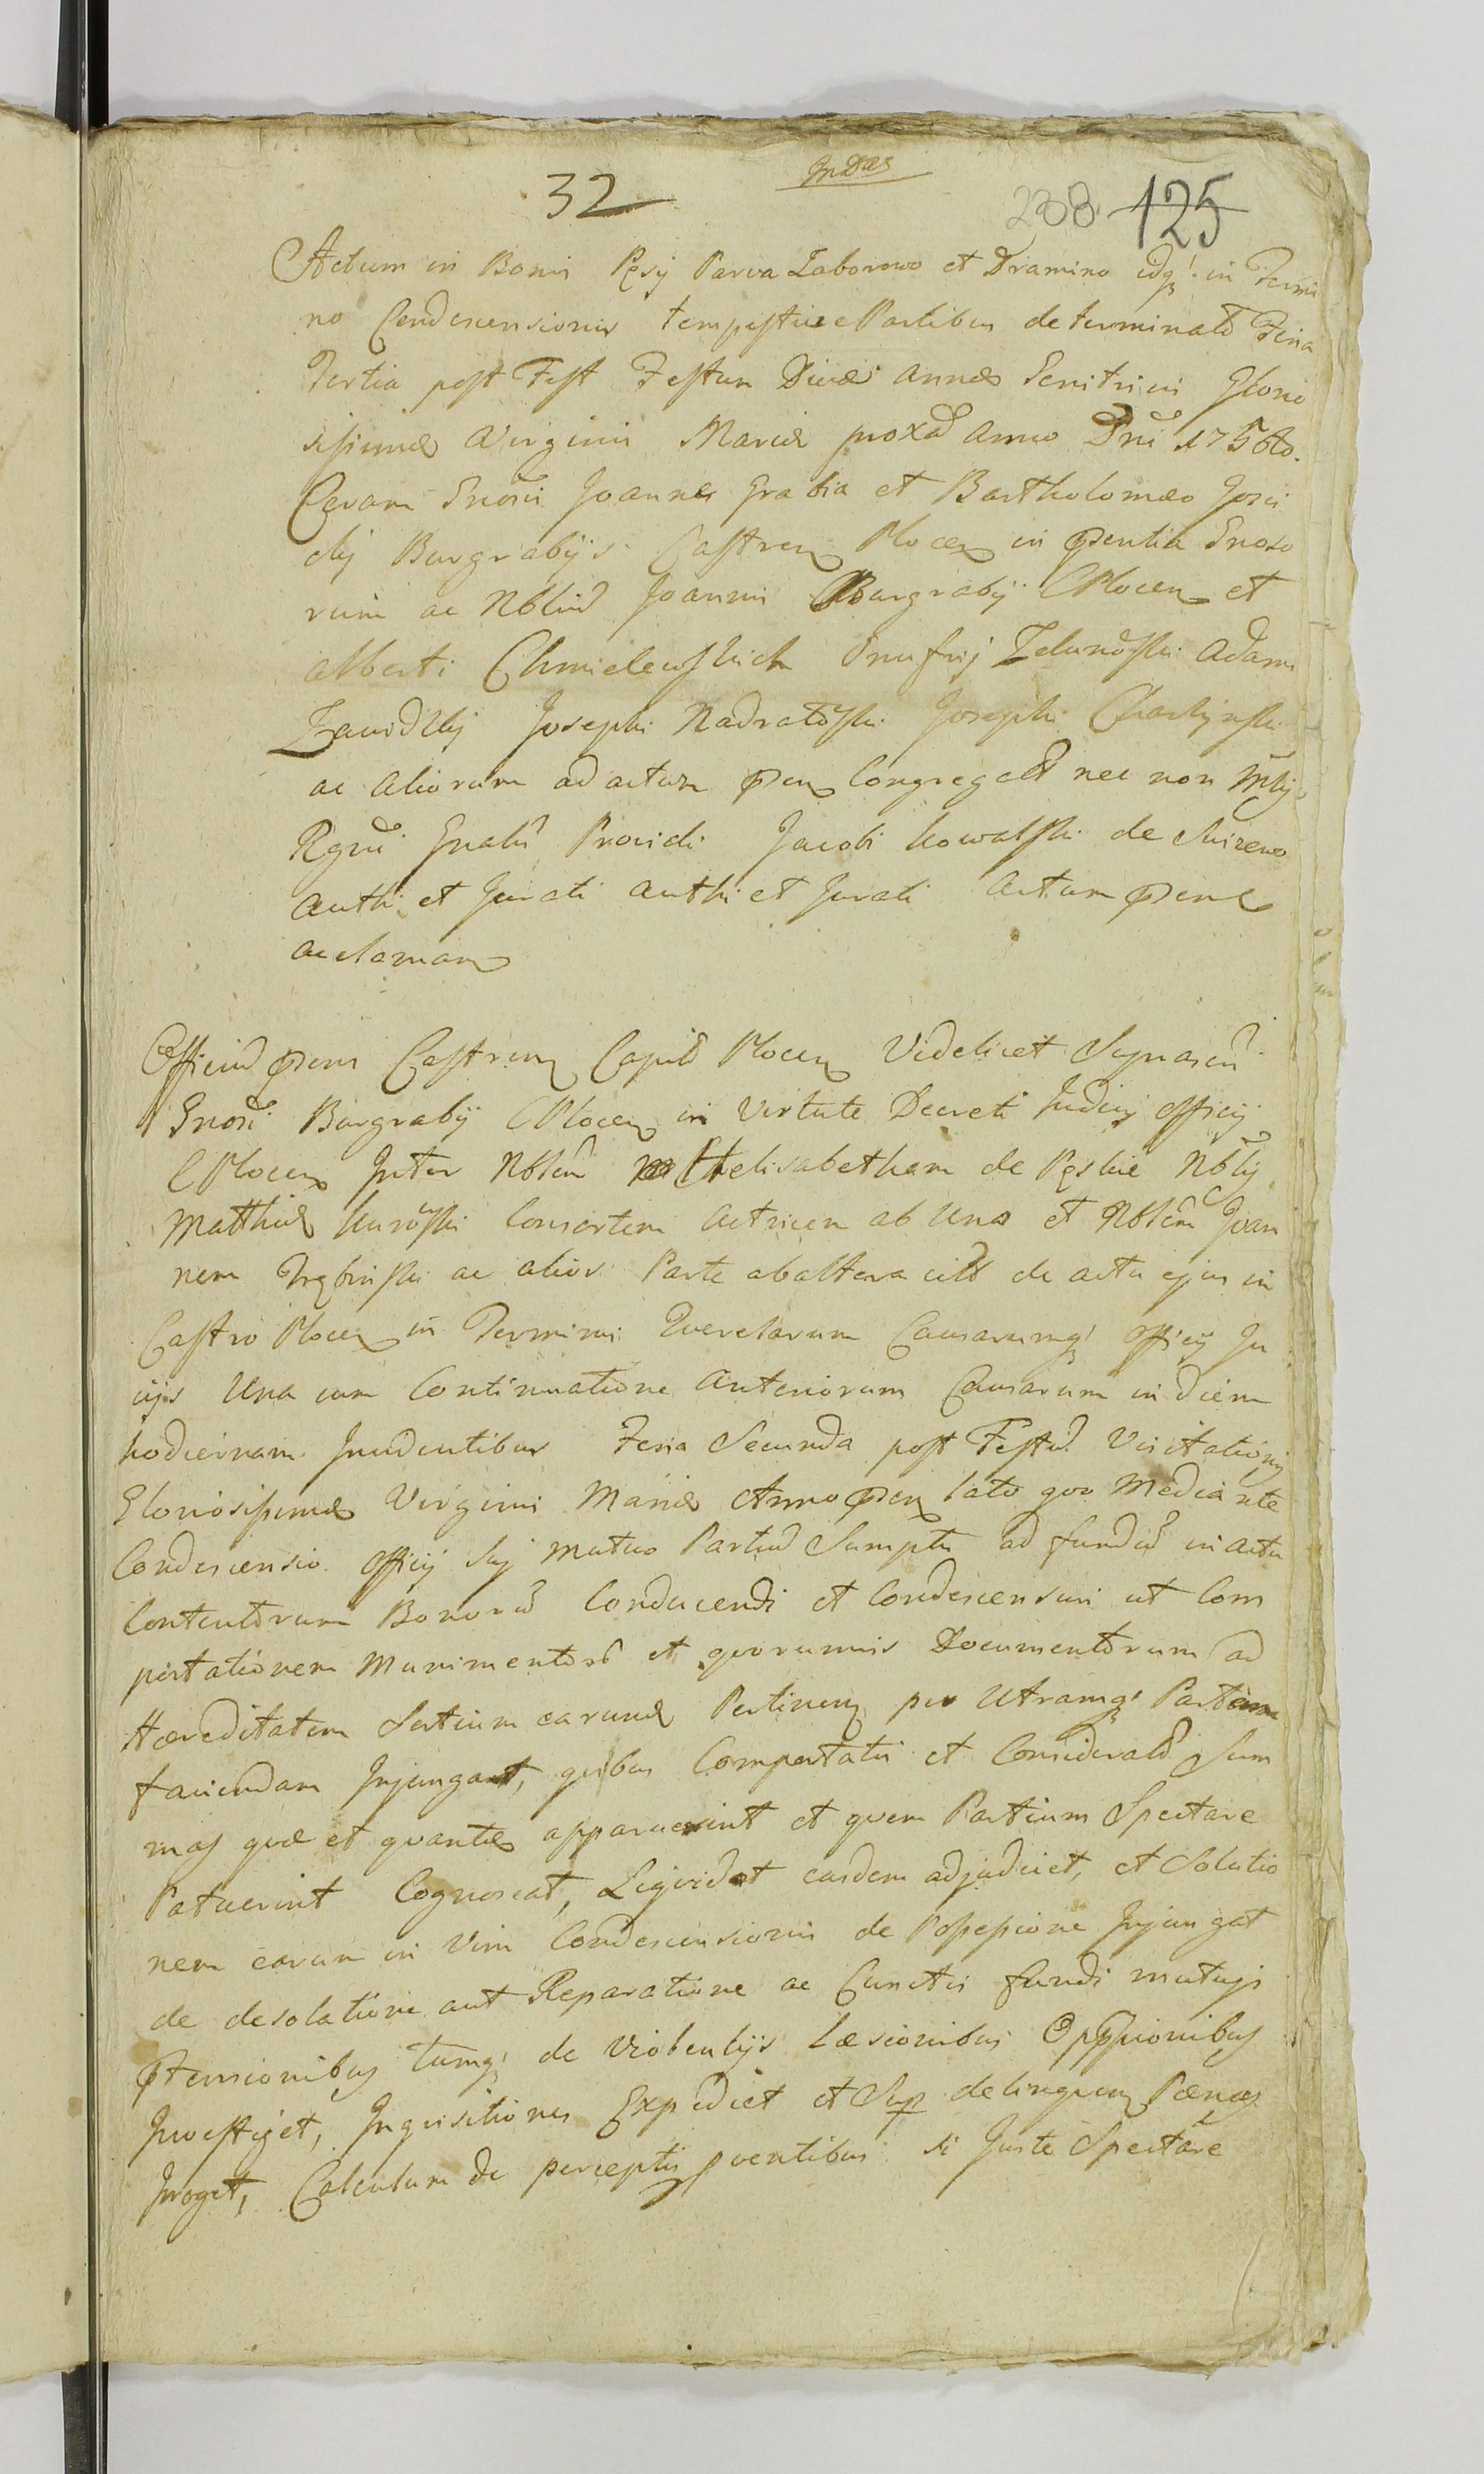 In Dei
32
238 125
Actum in Bonis Pęsy Parva Zaborowo et Dramino idq; in Termi
no Condescensionis tempestive Partibus determinato Feria
Tertia post Fest Festum Divæ Annæ Genitricis Glorio
sissimæ Virginis Mariæ proxã Anno Dni 1756to.
Coram Gnosis Joanne Grabia et Bartholomæo
Burgrabijs Castren Plocen in pntia Gnoso
rum ac Nblium Joannis Burgrabij CPlocen et
Alberti Chmielewskich Onufrij Adami
Zawidzkij Josephi Nadratowski Josephi
ac aliorum ad actum pñ Congregat nec non Mtlis
Regni Gnalis Providi Jacobi Kowalski de
Authi et Jurati Authi et Jurati Actum pñ
aclaman
Officium pñs Castren Capitle Plocen Videlicet
Gnosi Burgrabij CPlocen in Virtute Decreti Judicij Officij
CPlocen Inter Nblem Elisabetham de Pęskie Nblis
Matthiæ Kurowski Consortem Actricem ab Una et Nblem Joan
nem ac alios Parte ab altera citt de actu ejus in
Castro Plocen in Terminis Querelarum Causarumq; Officij Ju
cijs Una cum Continuatione Anteriorum Causarum in diem
hodiernam Incidentibus Feria Secunda post Festũ Visitationis
Gloriosissimæ Virginis Mariæ Anno pñ lato quo Mediante
Condescensio Officij Sui mutuo Partium Sumptu ad fundũ in actu
Contentorum Bonorũ Conducendi et Condescensuri ut Com
portationem Munimentorũ et quorumvis Documentorum ad
Hæreditatem Sortium earund Pertinen per Utramq; Partem
faciendam Injungat, quibus Comportatis et Considerat Sum
mas quæ et quantæ apparuerint et quem Partium Spectare
Patuerint Cognoscat, Liquidet easdem adjudicet, et Solutio
nem earum in Vim Condescensionis de Possessione Injungat
de desolatione aut Reparatione ac Cunctis fundi mutuis
ptensionibus tumq; de Violentijs Læsionibus Oppssionibus
Investiget, Inquisitiones Expediet et Sup delinquen Pænas
Iroget, Calculum de perceptis pventibus si Juste Spectare